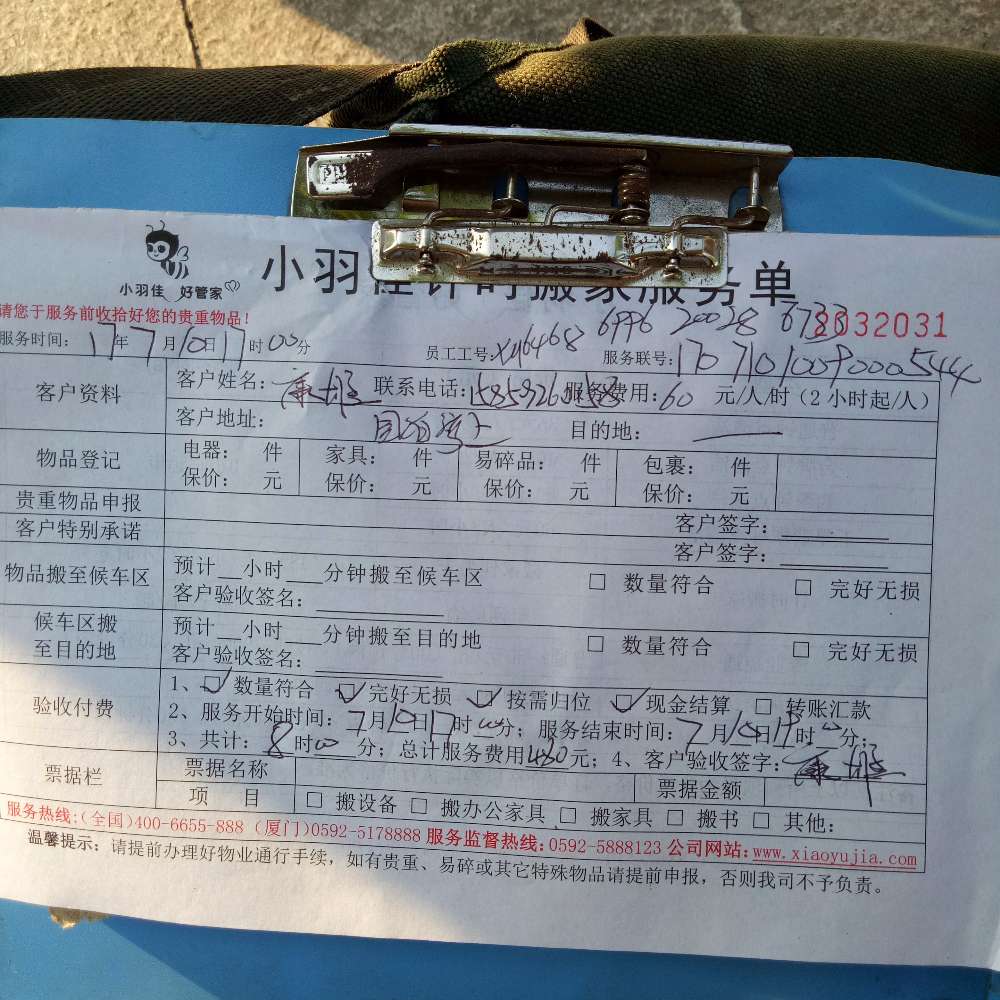 小羽佳 好管家
小羽佳计时搬家服务单
请您于服务前收拾好您的贵重物品！
6996 20028 6733
2032031
服务时间：17年7月10日17时00分 员工工号：XM6468 服务联号：
客户资料
客户姓名： 联系电话： 服务费用：60元/人/时（2小时起/人）
客户地址： 目的地：
物品登记
电器： 件 家具： 件 易碎品： 件 包裹： 件
保价： 元 保价： 元 保价： 元 保价： 元
贵重物品申报 客户签字：
客户特别承诺 客户签字：
物品搬至候车区
预计__小时___分钟搬至候车区 □ 数量符合 □ 完好无损
客户验收签名：
候车区搬
至目的地
预计__小时___分钟搬至目的地 □ 数量符合 □ 完好无损
客户验收签名：
验收付费
1、☑数量符合 ☑完好无损 ☑按需归位 ☑现金结算 □ 转账汇款
2、服务开始时间：7月10日17时00分；服务结束时间：7月10日19时00分；
3、共计：8时00分；总计服务费用480元；4、客户验收签字：
票据栏
票据名称 票据金额
项 目 □ 搬设备 □ 搬办公家具 □ 搬家具 □ 搬书 □ 其他：
服务热线：（全国）400-6655-888（厦门）0592-5178888 服务监督热线：0592-5888123 公司网站：www.xiaoyujia.com
温馨提示：请提前办理好物业通行手续，如有贵重、易碎或其它特殊物品请提前申报，否则我司不予负责。